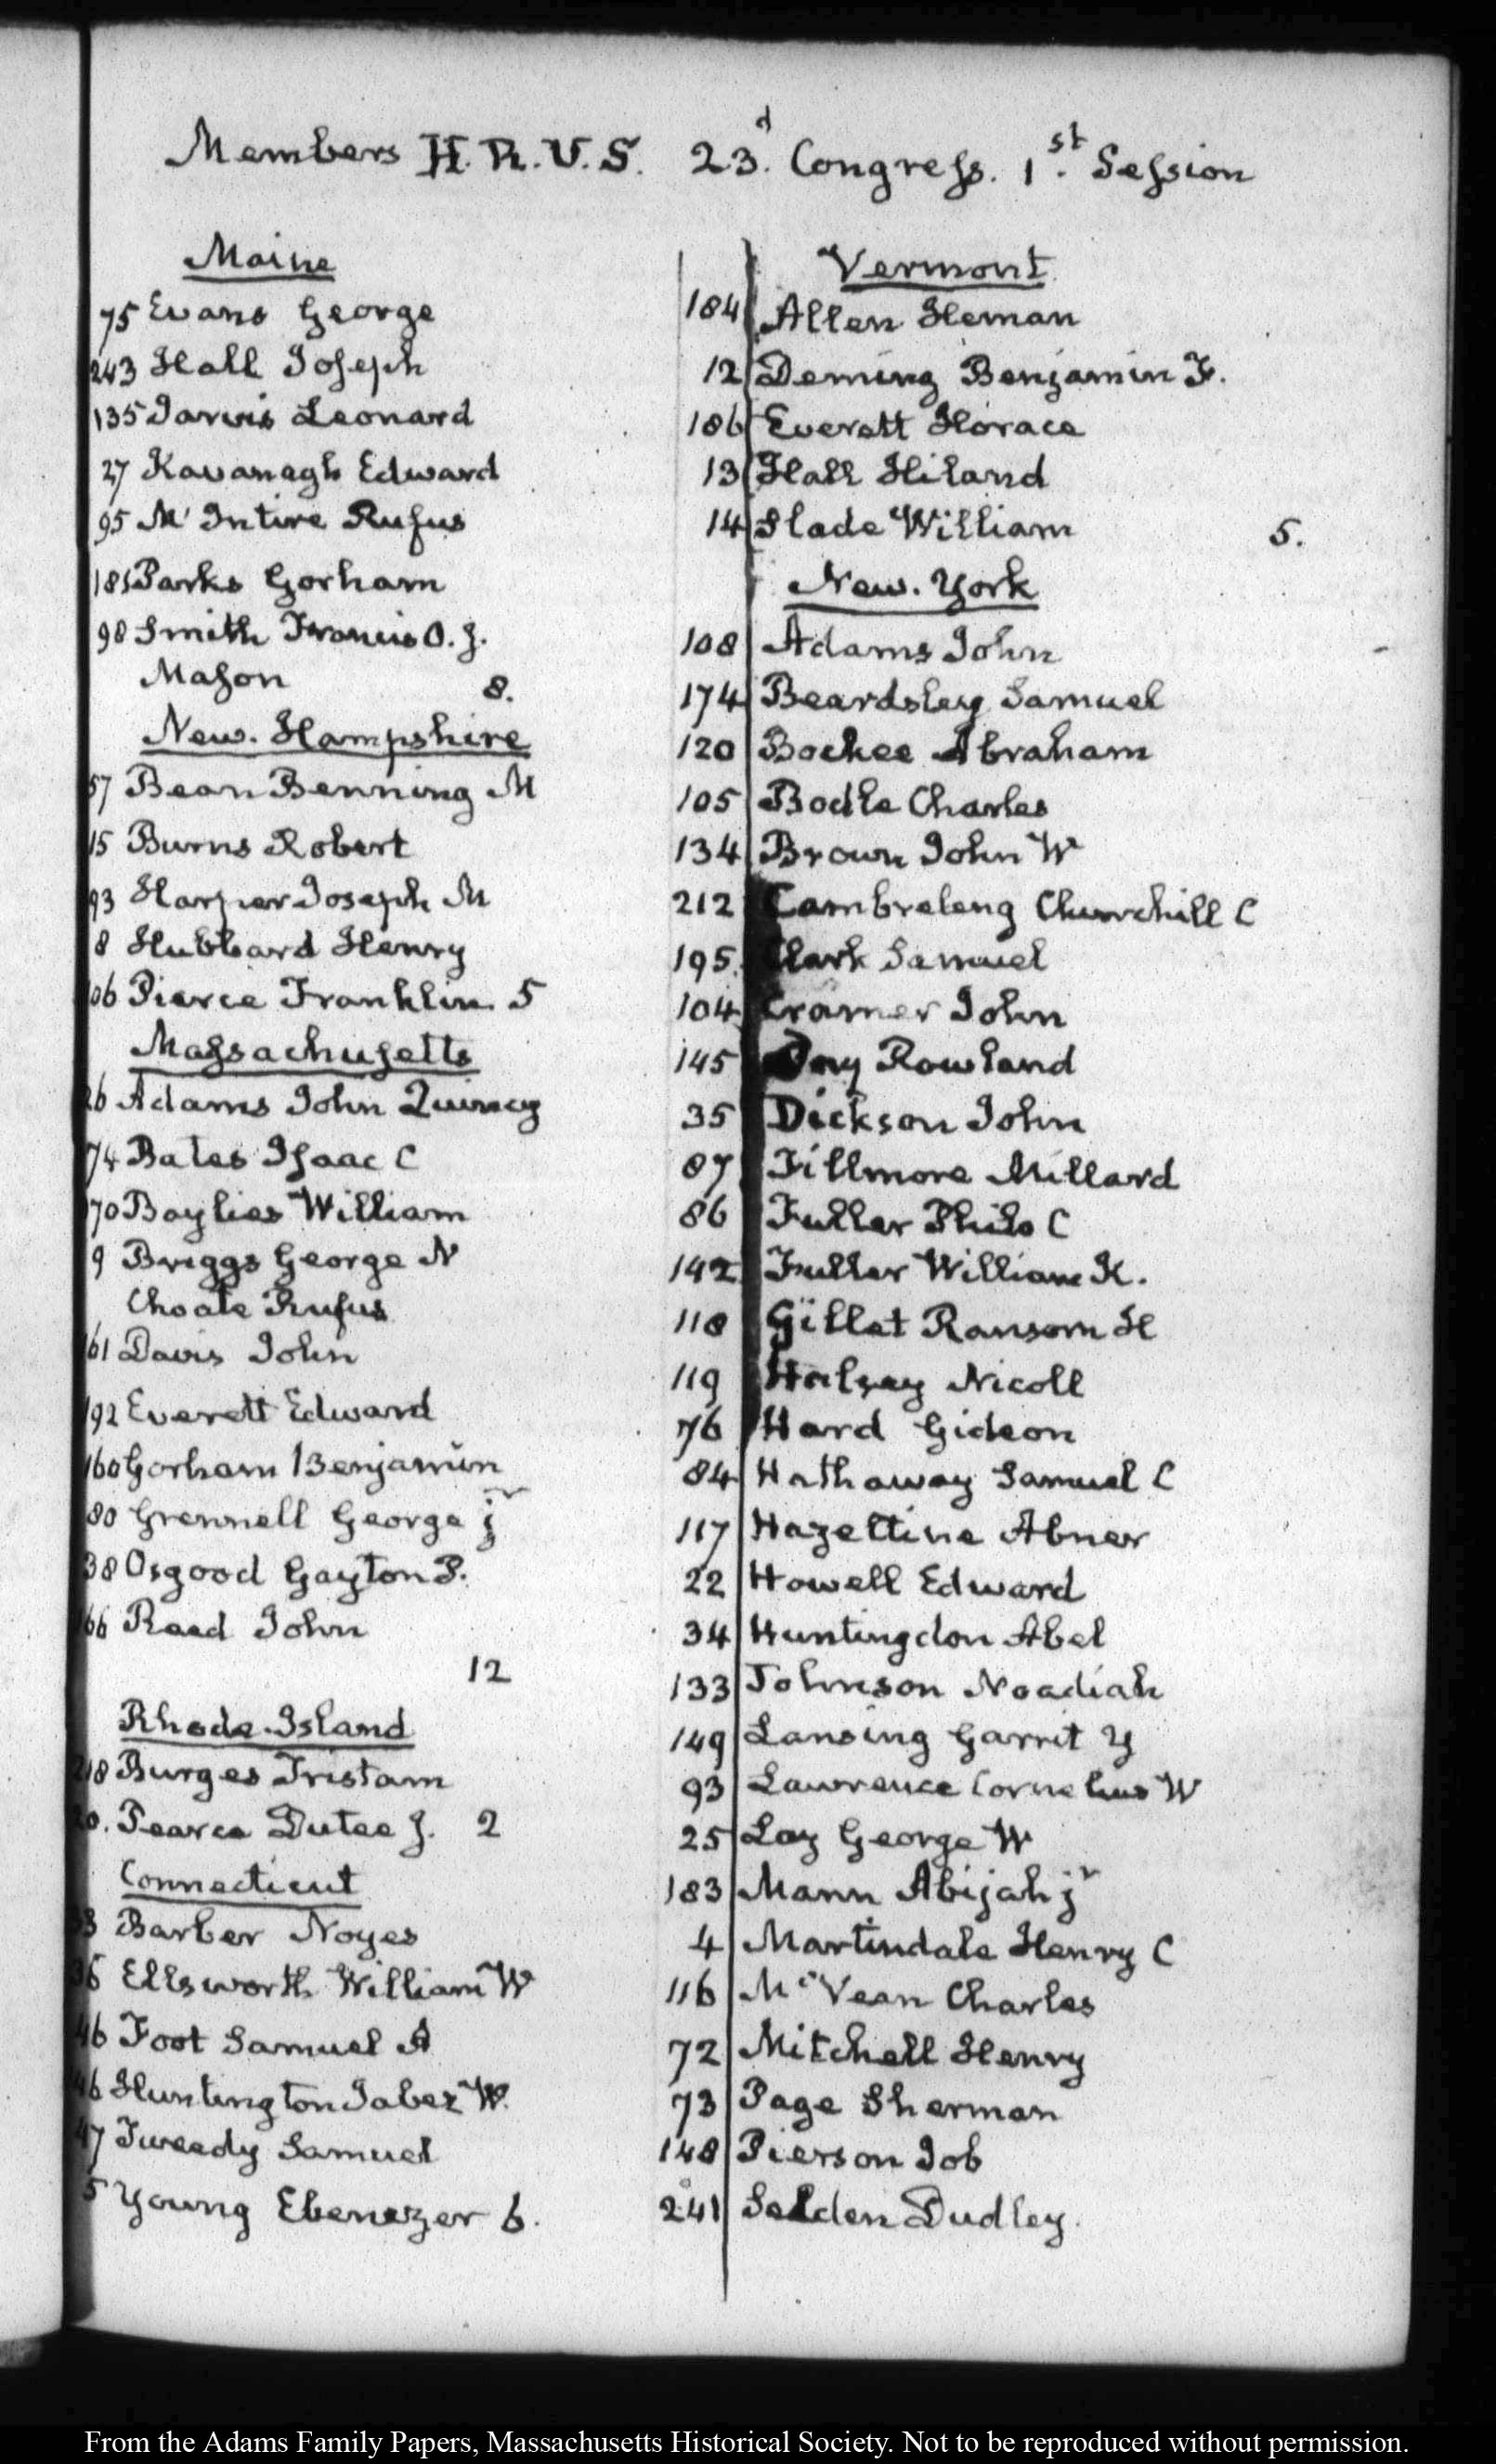 Members H.R.U.S. 23.d Congress. 1.st Session
Maine
75 Evans George
243 Hall Joseph
135 Jarvis Leonard
27 Kavanagh Edward
95 Mc Intire Rufus
181 Parks Gorham
98 Smith Francis O. J.
Mason 8.
New-Hampshire
57 Bean Benning M
15 Burns Robert
93 Harper Joseph M
8 Hubbard Henry
06 Pierce Franklin 5
Massachusetts
26 Adams John Quincy
74 Bates Isaac C
70 Baylies William
9 Briggs George N
Choate Rufus
61 Davis John
192 Everett Edward
160 Gorham Benjamin
80 Grennell George jr
38 Osgood Gayton P.
66 Reed John
12
Rhode-Island
218 Burges Tristam
Pearce Dutee J. 2
Connecticut
Barber Noyes
36 Ellsworth William W
46 Foot Samuel A
46 Huntington Jabez W.
47 Tweedy Samuel
5 Young Ebenezer 6.
Vermont
184 Allen Heman
12 Deming Benjamin F.
186 Everett Horace
13 Hall Hiland
14 Slade William 5.
New-York
108 Adams John
174 Beardsley Samuel
120 Bockee Abraham
105 Bodle Charles
134 Brown John W
212 Cambreleng Churchill C
195 Clark Samuel
104 Cramer John
145 Day Rowland
35 Dickson John
87 Fillmore Millard
86 Fuller Philo C
142 Fuller William K.
118 Gillet Ransom H
119 Halsey Nicoll
76 Hard Gideon
84 Hathaway Samuel C
117 Hazeltine Abner
22 Howell Edward
34 Huntingdon Abel
133 Johnson Noadiah
149 Lansing Garrit Y
93 Lawrence Cornelius W
25 Lay George W
183 Mann Abijah jr
4 Martindale Henry C
116 Mc Vean Charles
72 Mitchell Henry
73 Page Sherman
148 Pierson Job
241 Selden Dudley.
From the Adams Family Papers, Massachusetts Historical Society. Not to be reproduced without permission.